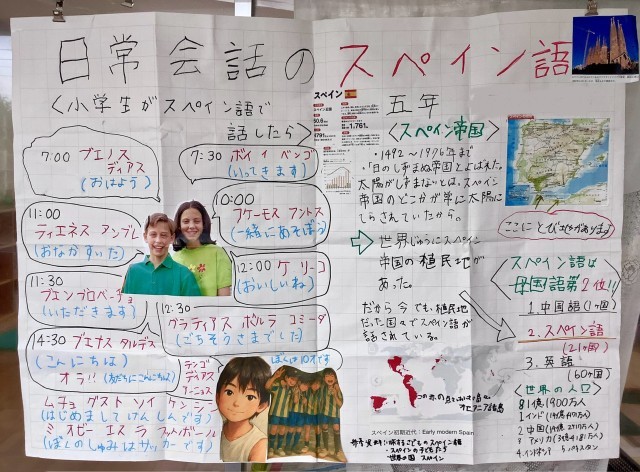 日常会話のスペイン語
<小学生がスペイン語で
話したら>
五年
7:00 ブエノス
ディアス
(おはよう)
7:30 ボイ イ ベンゴ
(いってきます)
10:00
フケーモス フントス
(一緒にあそぼう)
11:00
ティエネス アンブレ
(おなかすいた)
12:00 ケ リーコ
(おいしいね)
11:30
ブエンプロベーチョ
(いただきます)
12:30
グラティアス ポルラ コミーダ
(ごちそうさまでした)
14:30 ブエナス タルデス
(こんにちは)
オラ!!
テンゴ
ディアス
アーニョス
ぼくは10才です
ムチョ グスト ソイ ケンシン
(はじめまして けんしんです)
ミ オスビー エス ラ フットボール
(ぼくのしゅみはサッカーです)
スペイン
<スペイン帝国>
・1492～1976年まで
・「日のしずまぬ帝国」とよばれた。
太陽がしずまないとは、スペイン
帝国のどこかが常に太陽に
てらされていたから。
世界じゅうにスペイン
帝国の植民地が
あった。
だから今でも、植民地
だった国々でスペイン語が
話されている。
スペイン初期近代 : Early modern Spain
・スペインの子どもたち
世界の国 スペイン
スペイン語は
母国語第2位!!
1. 中国語(1ヶ国)
2. スペイン語
(21ヶ国)
3. 英語
(60ヶ国)
<世界の人口>
81億1900万人